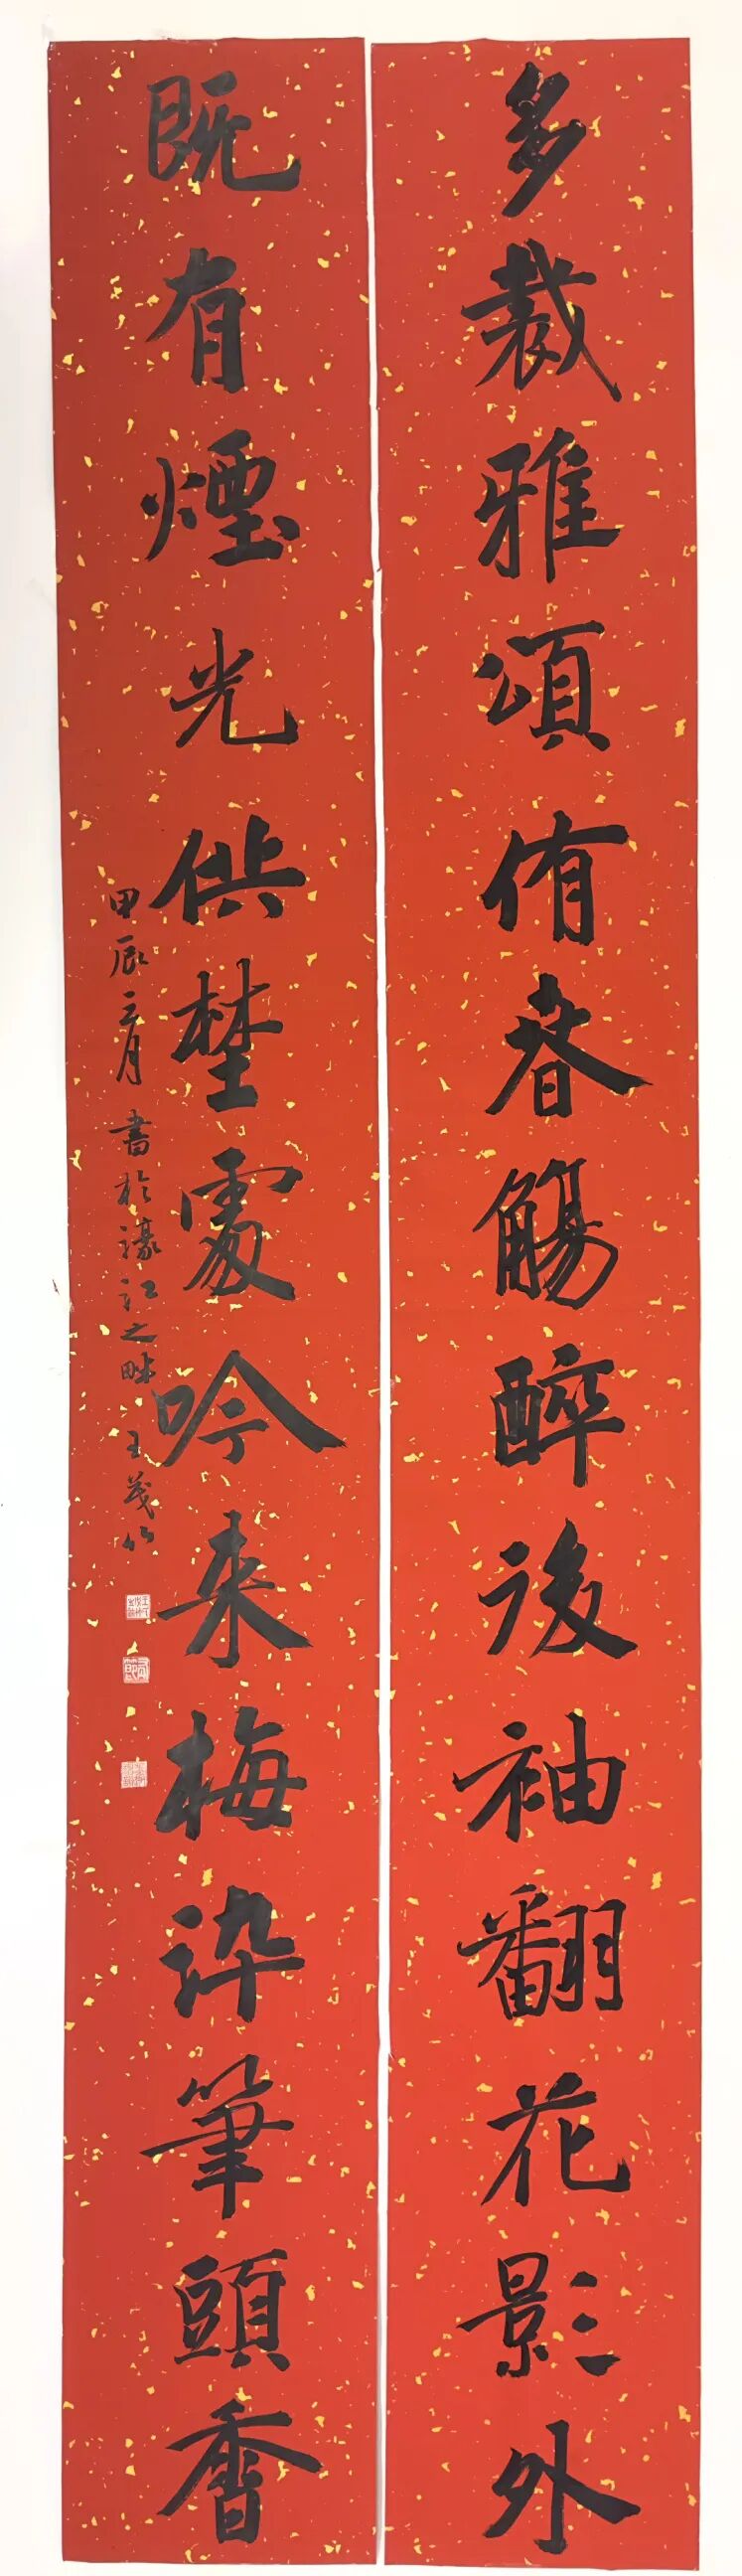 多裁雅頌侑春觴醉後袖翻花影外
既有煙光供埜處吟來梅染筆頭香
甲辰三月 書於濠江之畔 王茂